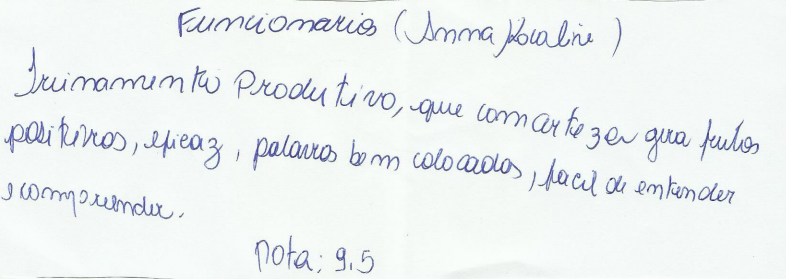 Funcionarios (Anna Kocaline)
Treinamento Produtivo, que com certeza gera frutos
positivos, eficaz, palavras bem colocadas, facil de entender
e compreender.
nota: 9.5